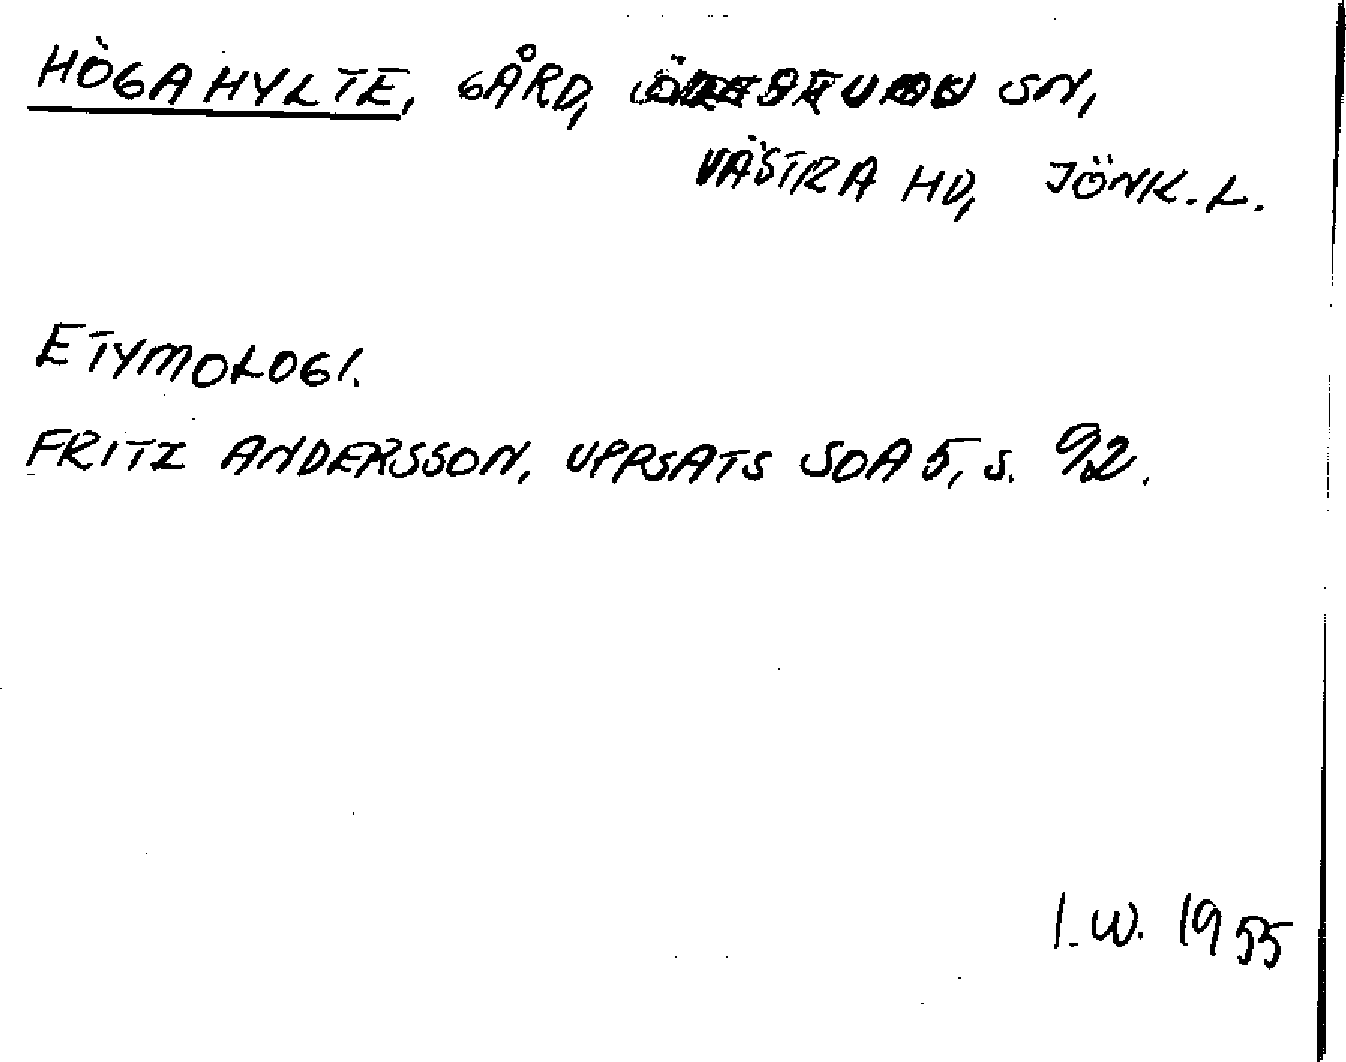 HÖGAHYLTE, GÅRD, SN,
VÄSTRA HD, JÖNK.L.
ETYMOLOGI.
FRITZ ANDERSSON, UPPSATS SOA 5, S. 92.
I.W. 1955